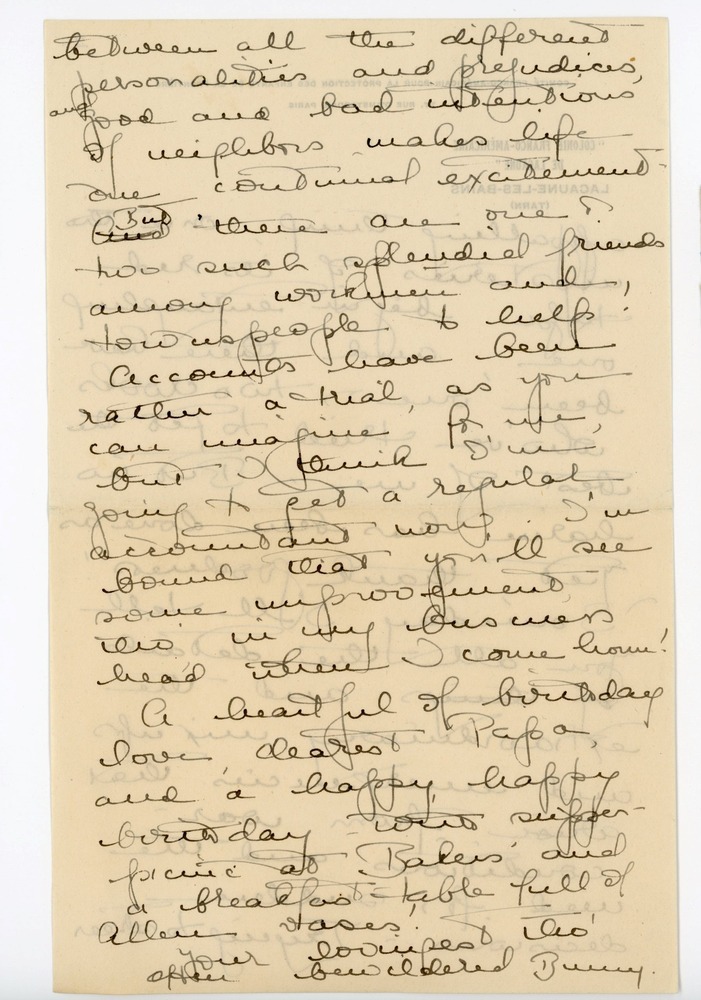 between all the different
personalities and prejudices,
and good and bad intentions
of neighbors makes life
one continual excitement.
But there are one &
two such splendid friends
among workmen and
townspeople to help!
Accounts have been
rather a trial, as you
can imagine for me,
but I think I'm
going to get a regular
accountant now. I'm
bound that you'll see
some improvement
tho' in my business
head when I come home!
A heart full of birthday
love dearest Papa,
and a happy, happy
birthday with supper-
picnic at Bakers' and
a breakfast-table full of
Allen vases! & tho'
your lovingest
often bewildered Bunny.